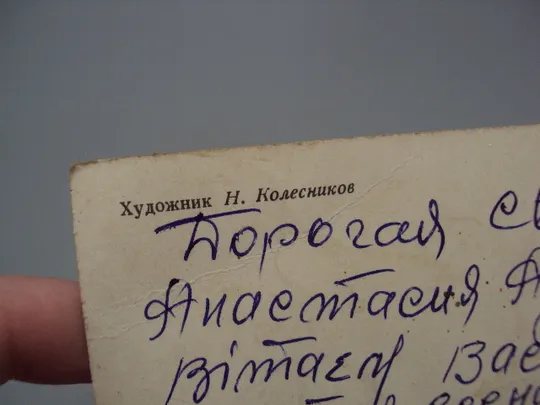 Художник Н. Колесников
Дорогая
Анастасия
Вітаєм Вас